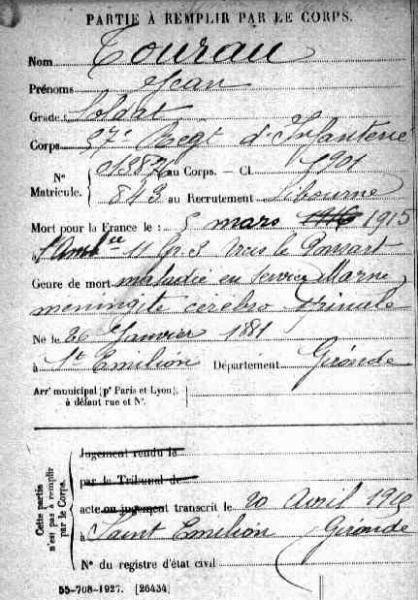 PARTIE À REMPLIR PAR LE CORPS.
Nom Tourau
Prénoms Jean
Grade Soldat
Corps 57e Régt d'Infanterie
N° 013876 au Corps. — Cl. 1901
Matricule. 843 au Recrutement Libourne
Mort pour la France le 5 mars 1916 1915
à l'Amb ce 11
Genre de mort maladie en service Marne
meningite cérébro spinale
Né le 26 Janvier 1881
à St Emilion Département Gironde
Arr' municipal (p' Paris et Lyon),
à défaut rue et N°.
Cette partie
n'est pas à remplir
par le Corps.
Jugement rendu le
par le Tribunal de
acte ou jugement transcrit le 20 Avril 1915
à Saint Emilion Gironde
N° du registre d'état civil
55-708-1927. [26434]